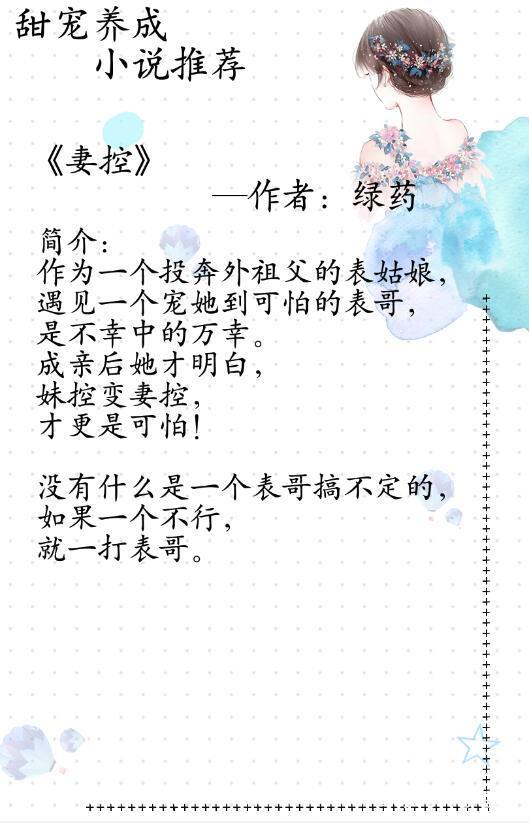 甜宠养成
小说推荐
《妻控》
—作者：绿药
简介：
作为一个投奔外祖父的表姑娘，
遇见一个宠她到可怕的表哥，
是不幸中的万幸。
成亲后她才明白，
妹控变妻控，
才更是可怕！
没有什么是一个表哥搞不定的，
如果一个不行，
就一打表哥。